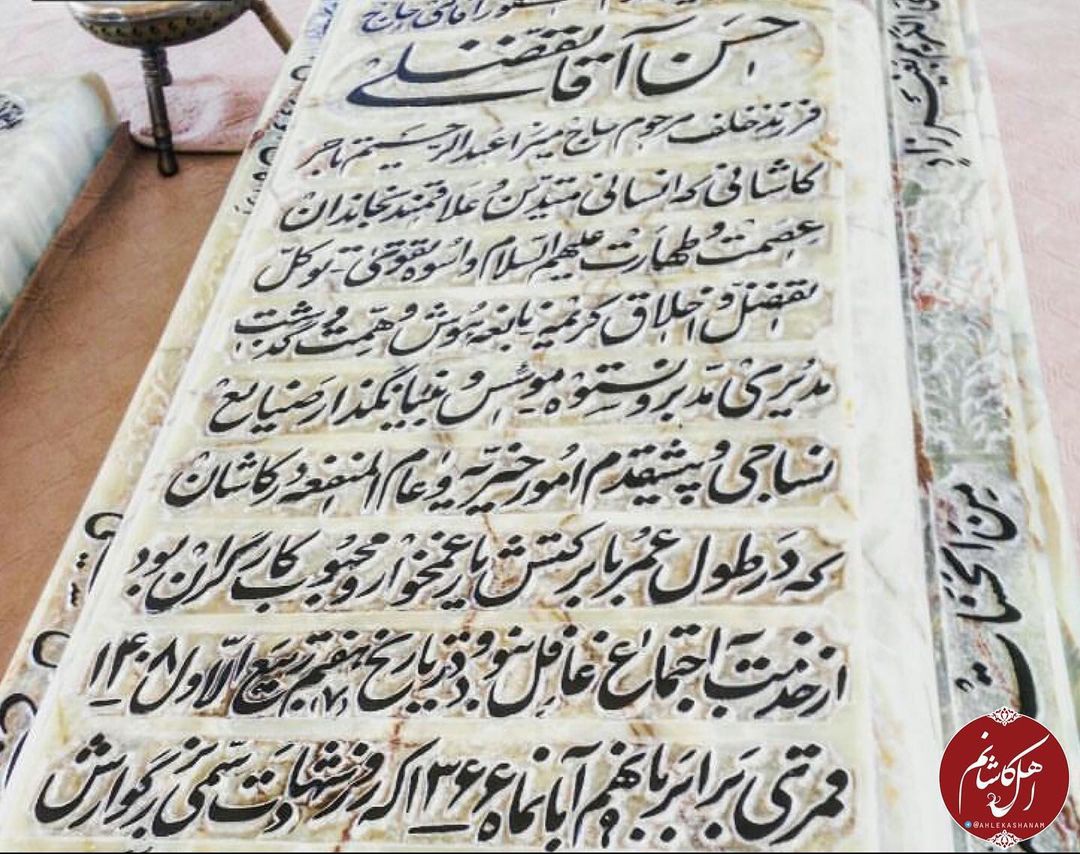 مغفور آقای حاج
حسن آقا تفضلی
فرزند خلف مرحوم حاج میرزا عبدالرحیم تاجر
کاشانی که انسانی متدین و علاقمند بخاندان
عصمت و طهارت علیهم السلام و اسوه تقوی - توکل
تفضل و اخلاق کریمه نابغه هوش و همت و گذشت
مدیری مدبر و نستوه موسس و بنیانگذار صنایع
نساجی و پیشقدم امور خیریه و عام المنفعه در کاشان
که در طول عمر بابرکتش یار غمخوار و محبوب کارگران بود
از خدمت به اجتماع غافل نبود و در تاریخ هفتم (۷) ربیع الاول ۱۴۰۸
قمری برابر با نهم آبانماه ۱۳۶۶ که روز شهادت سمی بزرگوارش
الکریم بغیر زاد
من الحسنات
اهل کاشانم
@AHLEKASHANAM